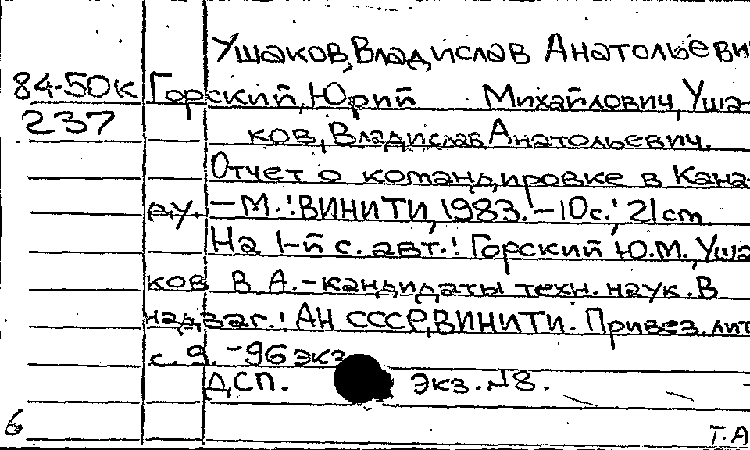 Ушаков, Владислав Анатольеви
84-50к Горский, Юрий Михайлович, Уша-
237 ков, Владислав Анатольевич.
Отчет о командировке в Кана-
ду. – М.: ВИНИТИ, 1983. – 10с.; 21cm
На 1-й с. авт.: Горский Ю.М., Уша
ков В. А. – кандидаты техн. наук. В
надзаг.: АН СССР, ВИНИТИ. Привез. лит
с. 9. – 96 экз
ДСП. экз. №8.
6 Т.А